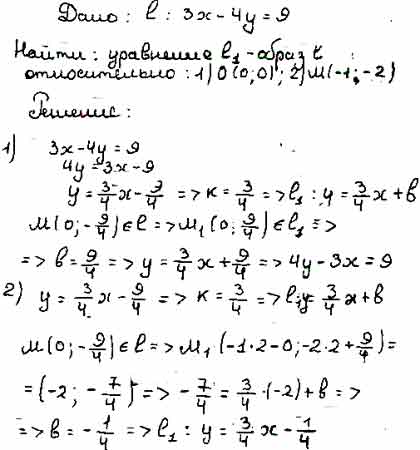 Дано: l: 3x-4y=9
Найти: уравнение l₁-образ l
относительно: 1) O(0;0); 2) M(-1;-2)
Решение:
1) 3x-4y=9
4y=3x-9
y=3/4x-9/4 => k=3/4 => l₁: y=3/4x+b
M(0;-9/4)∈l => M₁(0;9/4)∈l₁ =>
=> b=9/4 => y=3/4x+9/4 => 4y-3x=9
2) y=3/4x-9/4 => k=3/4 => l₁: y=3/4x+b
M(0;-9/4)∈l => M₁(-1·2-0;-2·2+9/4)=
=(-2;-7/4) => -7/4=3/4·(-2)+b =>
=> b=-1/4 => l₁: y=3/4x-1/4